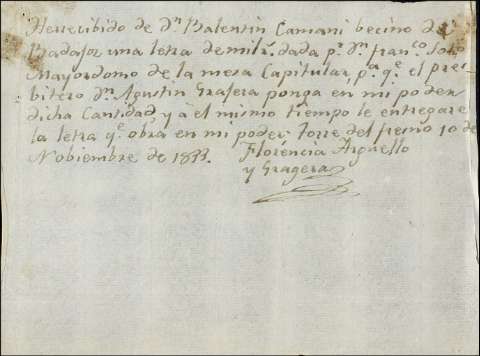 Herrecibido de dn Balentin Camani becino de
Badajoz una letra de mil rs. dada pr. dn franco. Soto
Mayordomo de la mesa Capitular, pa. qe. el pres
bitero dn Agustin Grajera ponga en mi poder
dicha Cantidad y à el mismo tiempo le entregare
la letra qe obra en mi poder torre del fresno 10 de
Nobiembre de 1833.
Florencia Arguello
y Gragera